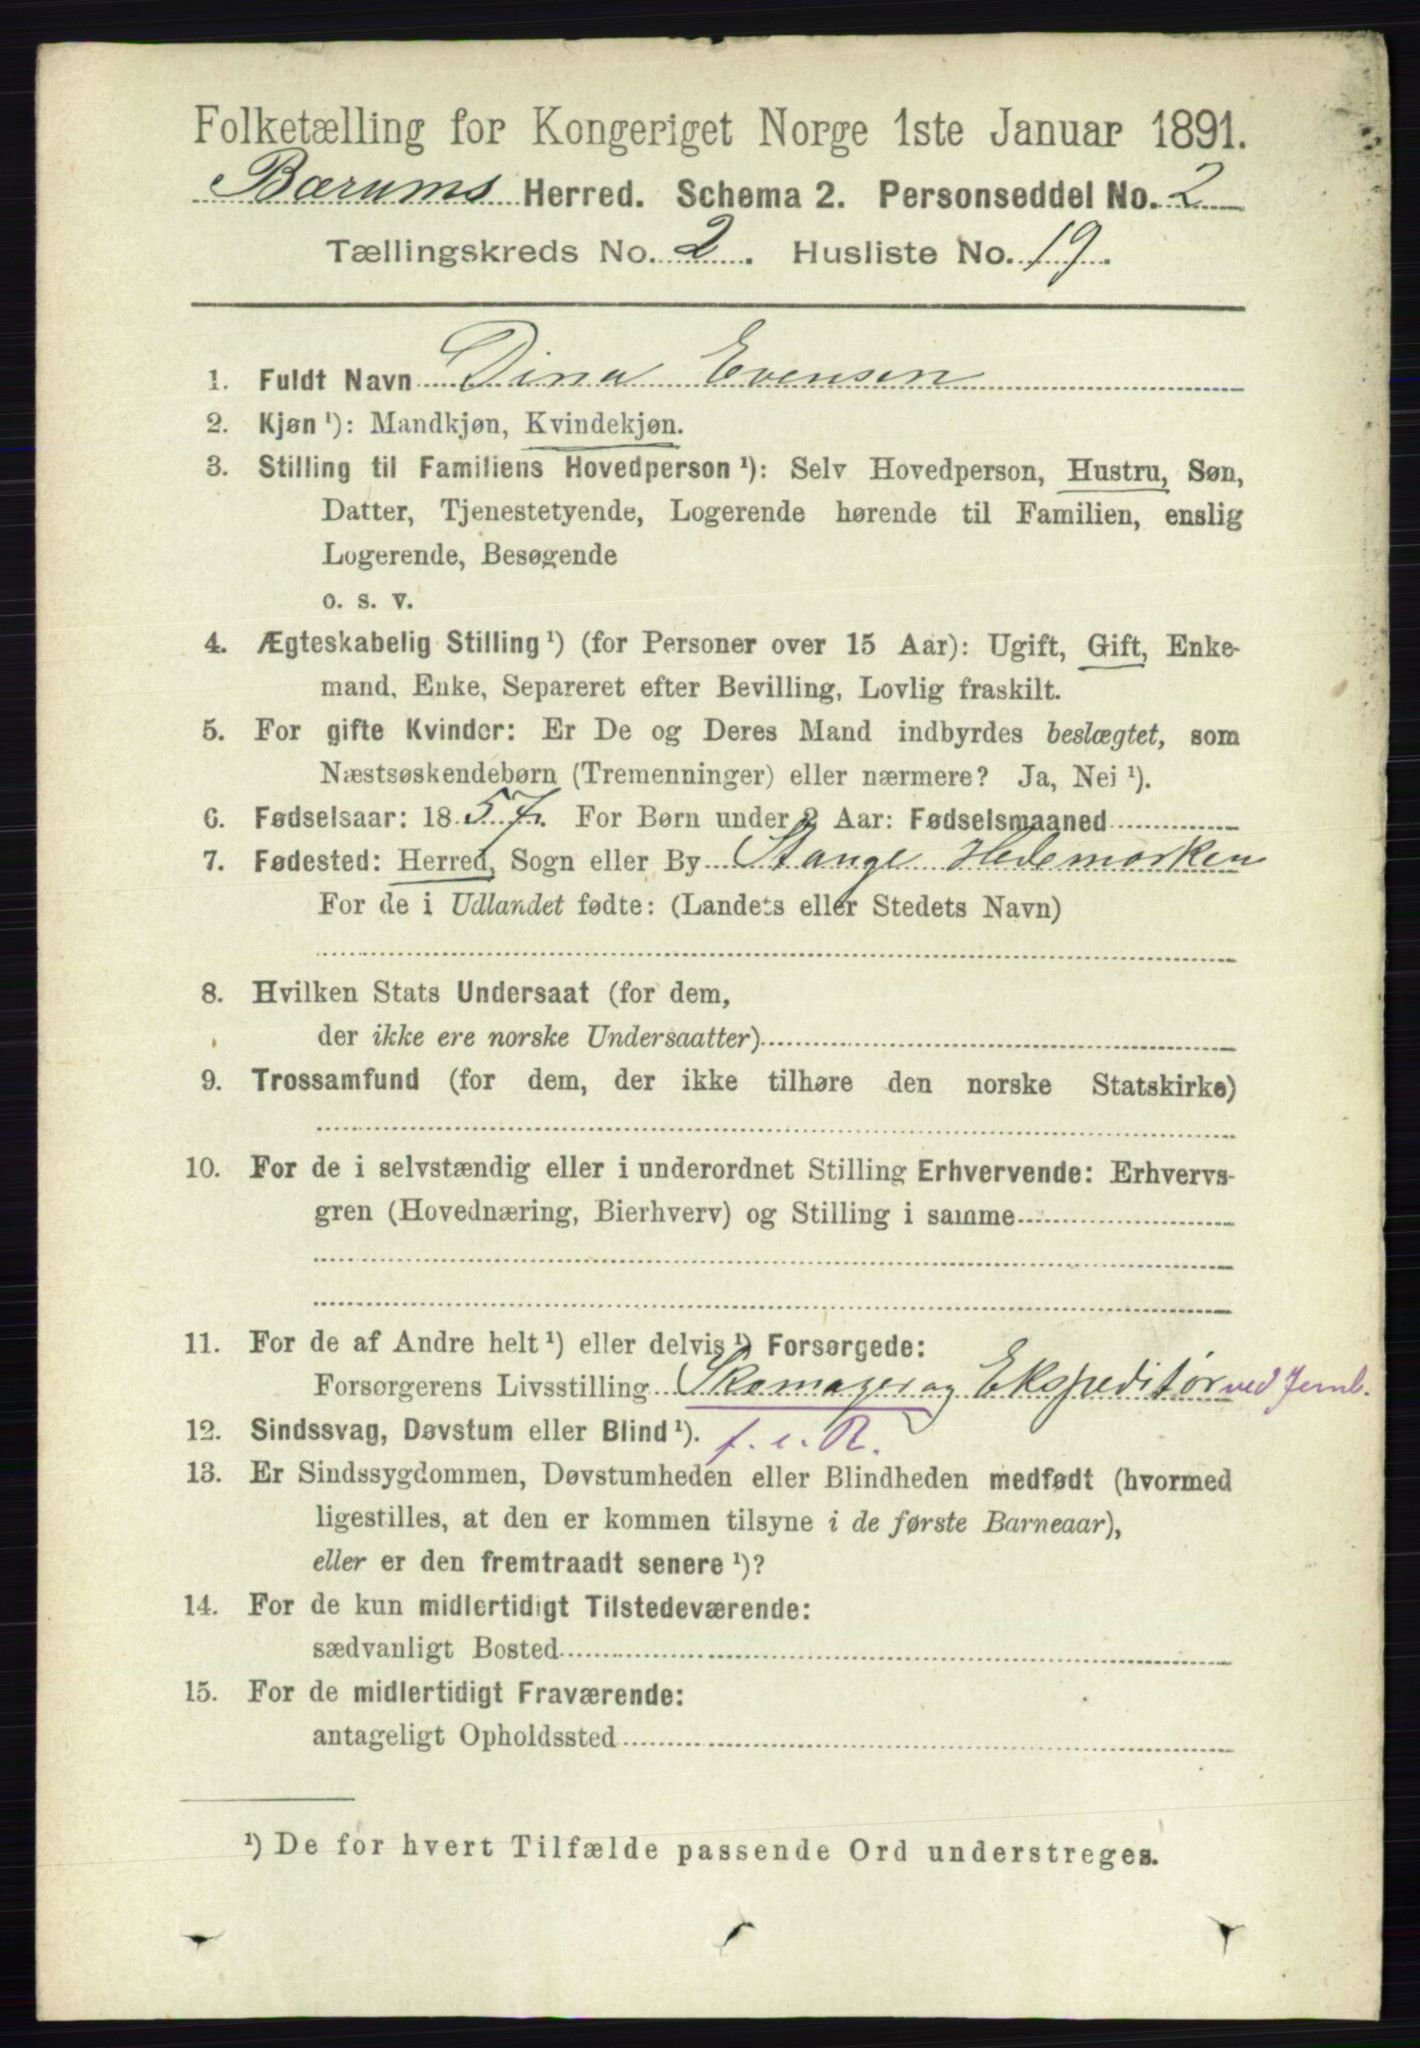 Folketælling for Kongeriget Norge 1ste Januar 1891.
Bærums Herred. Schema 2. Personseddel No. 2
Tællingskreds No. 2. Husliste No. 19.
1. Fuldt Navn Dina Evensen
2. Kjøn ¹): Mandkjøn, Kvindekjøn.
3. Stilling til Familiens Hovedperson ¹): Selv Hovedperson, Hustru, Søn,
Datter, Tjenestetyende, Logerende hørende til Familien, enslig
Logerende, Besøgende
o. s. v.
4. Ægteskabelig Stilling ¹) (for Personer over 15 Aar): Ugift, Gift, Enke-
mand, Enke, Separeret efter Bevilling, Lovlig fraskilt.
5. For gifte Kvinder: Er De og Deres Mand indbyrdes beslægtet, som
Næstsøskendebørn (Tremenninger) eller nærmere? Ja, Nei ¹).
6. Fødselsaar: 1857. For Børn under 2 Aar: Fødselsmaaned
7. Fødested: Herred, Sogn eller By Stange Hedemarken
For de i Udlandet fødte: (Landets eller Stedets Navn)
8. Hvilken Stats Undersaat (for dem,
der ikke ere norske Undersaatter)
9. Trossamfund (for dem, der ikke tilhøre den norske Statskirke)
10. For de i selvstændig eller i underordnet Stilling Erhvervende: Erhvervs-
gren (Hovednæring, Bierhverv) og Stilling i samme
11. For de af Andre helt ¹) eller delvis ¹) Forsørgede:
Forsørgerens Livsstilling Skomager og Ekspeditør ved Jernb.
12. Sindssvag, Døvstum eller Blind ¹). f. e. R.
13. Er Sindssygdommen, Døvstumheden eller Blindheden medfødt (hvormed
ligestilles, at den er kommen tilsyne i de første Barneaar),
eller er den fremtraadt senere ¹)?
14. For de kun midlertidigt Tilstedeværende:
sædvanligt Bosted
15. For de midlertidigt Fraværende:
antageligt Opholdssted
¹) De for hvert Tilfælde passende Ord understreges.